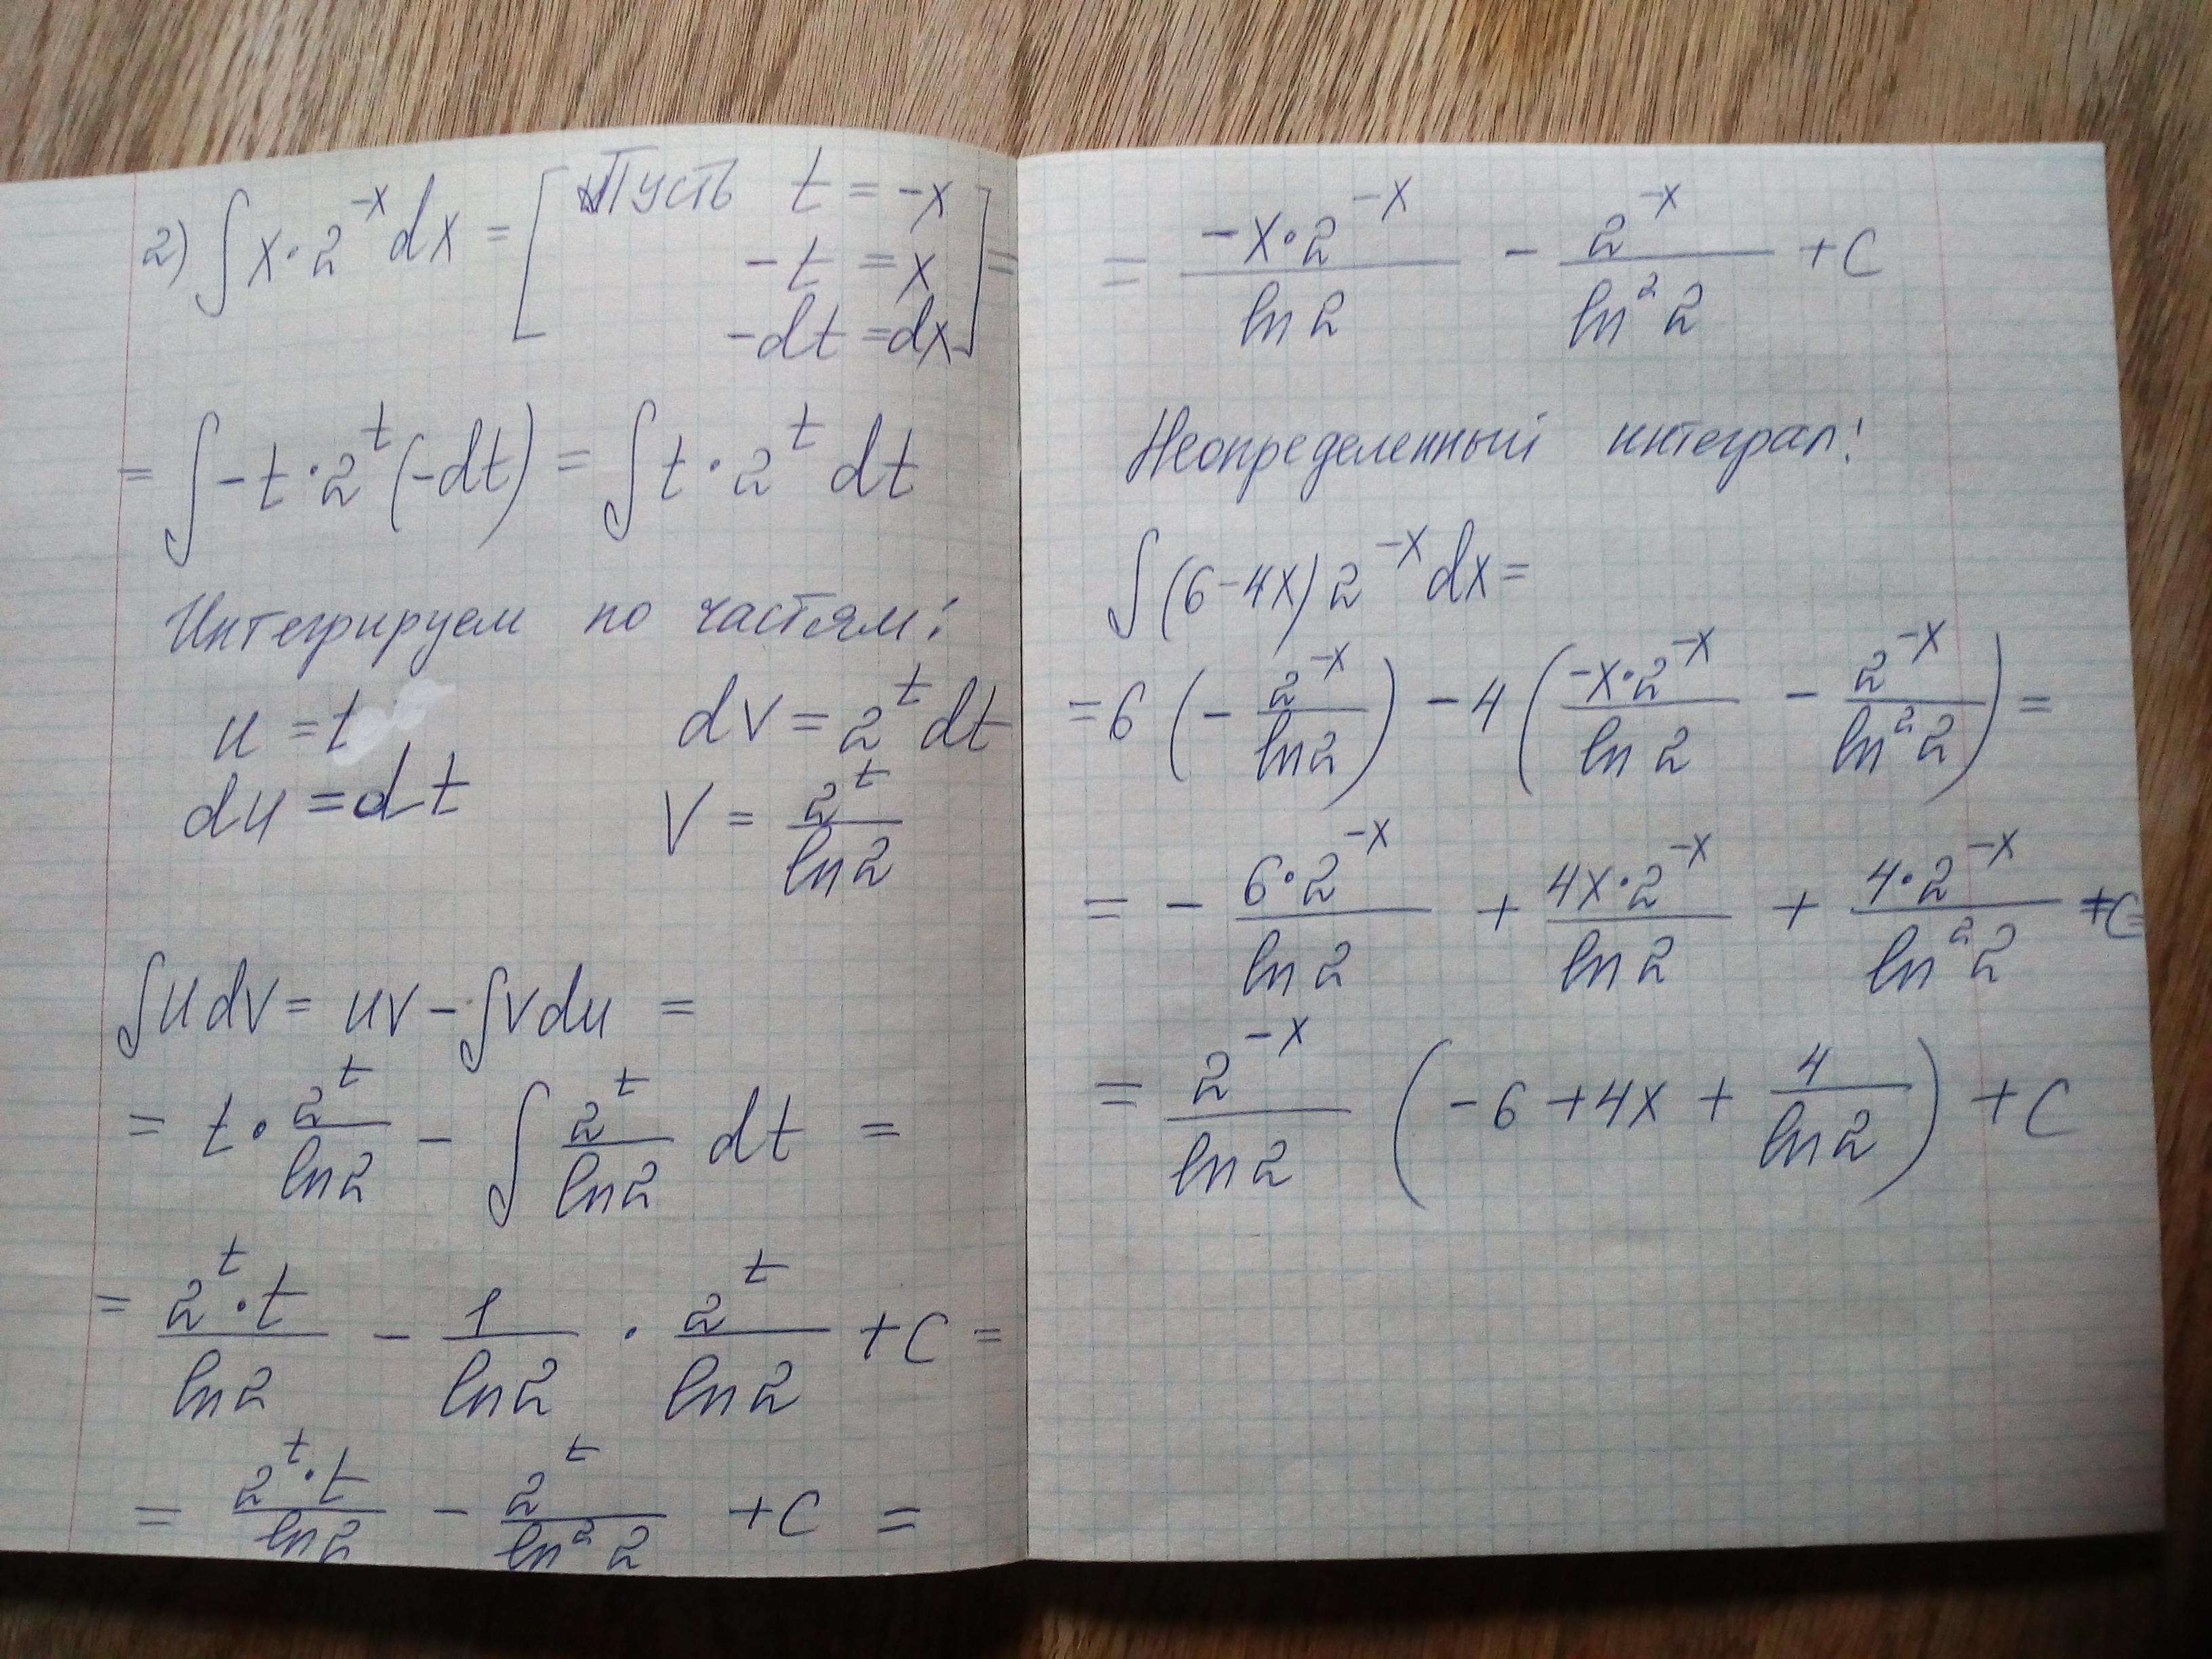 2) ∫ x·2^(-x) dx = [Пусть t = -x
-t = x
-dt = dx] =
= ∫ -t·2^t (-dt) = ∫ t·2^t dt
Интегрируем по частям:
u = t dv = 2^t dt
du = dt v = 2^t/ln2
∫udv = uv - ∫vdu =
= t · 2^t/ln2 - ∫ 2^t/ln2 dt =
= 2^t·t/ln2 - 1/ln2 · 2^t/ln2 + C =
= 2^t·t/ln2 - 2^t/ln²2 + C =
= -x·2^(-x)/ln2 - 2^(-x)/ln²2 + C
Неопределенный интеграл:
∫(6-4x) 2^(-x) dx =
= 6 (- 2^(-x)/ln2) - 4 (-x·2^(-x)/ln2 - 2^(-x)/ln²2) =
= - 6·2^(-x)/ln2 + 4x·2^(-x)/ln2 + 4·2^(-x)/ln²2 + C =
= 2^(-x)/ln2 (-6 + 4x + 4/ln2) + C